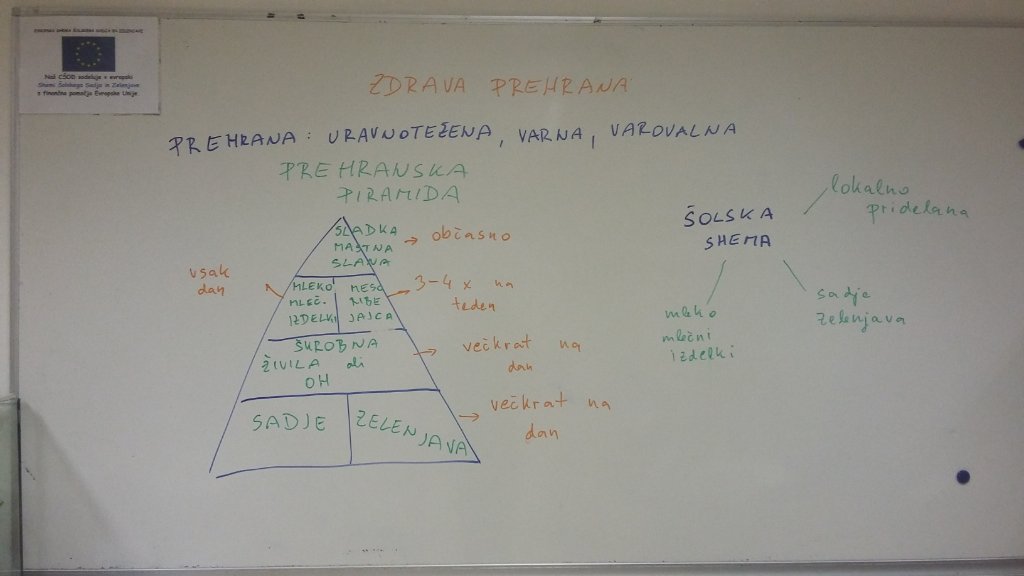 EVROPSKA UNIJA
Naš CŠOD sodeluje v evropski
Shemi Šolskega Sadja in Zelenjave
s finančno pomočjo Evropske Unije
ZDRAVA PREHRANA
PREHRANA: URAVNOTEŽENA, VARNA, VAROVALNA
PREHRANSKA
PIRAMIDA
SLADKA
MASTNA
SLANA
občasno
vsak
dan
MLEKO
MLEČ.
IZDELKI
MESO
RIBE
JAJCA
3-4 x na
teden
ŠKROBNA
ŽIVILA ali
OH
večkrat na
dan
SADJE
ZELENJAVA
večkrat na
dan
ŠOLSKA
SHEMA
lokalno
pridelana
mleko
mlečni
izdelki
sadje
zelenjava